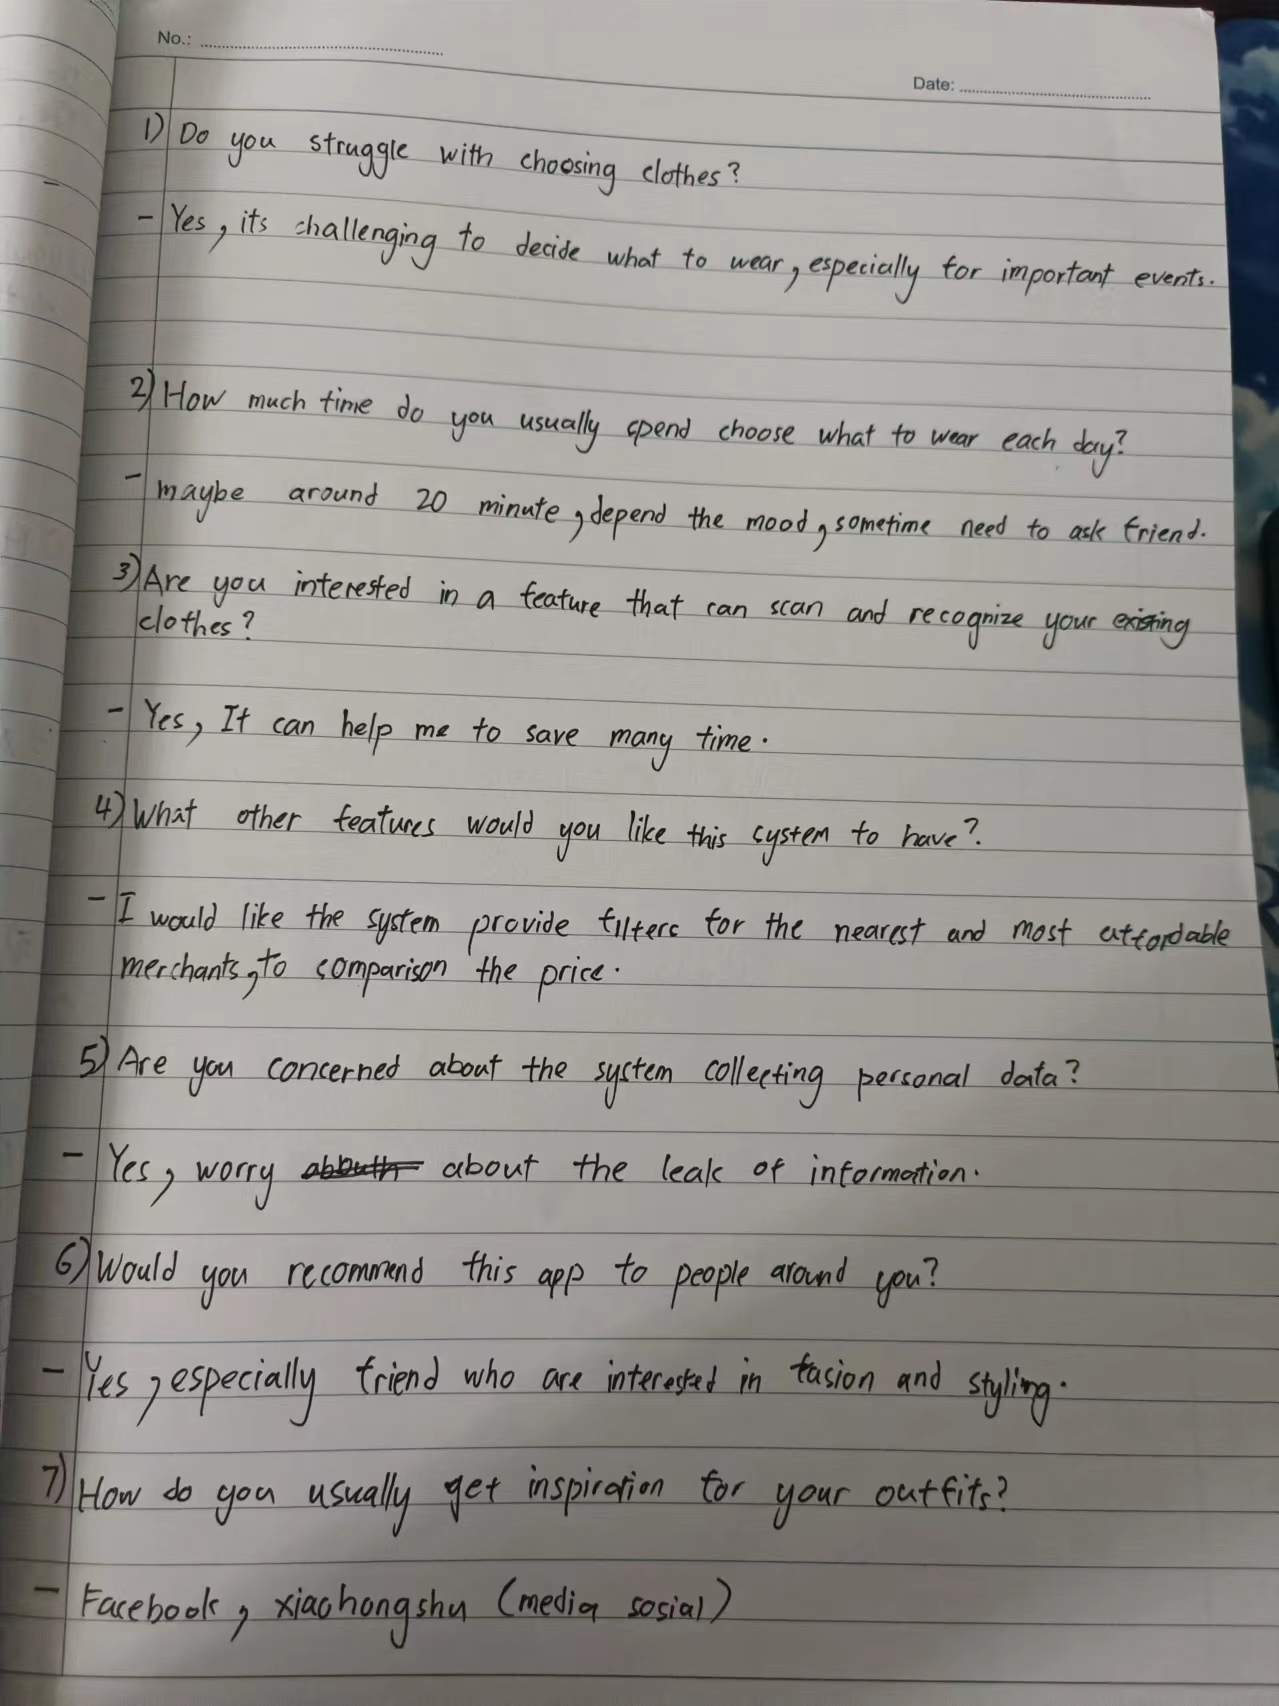 No.:
Date:
1) Do you struggle with choosing clothes?
- Yes, its challenging to decide what to wear, especially for important events.
2) How much time do you usually spend choose what to wear each day?
- maybe around 20 minute, depend the mood, sometime need to ask friend.
3) Are you interested in a feature that can scan and recognize your existing
clothes?
- Yes, It can help me to save many time.
4) What other features would you like this system to have?
- I would like the system provide filters for the nearest and most affordable
merchants, to comparison the price.
5) Are you concerned about the system collecting personal data?
- Yes, worry about the leak of information.
6) Would you recommend this app to people around you?
- Yes, especially friend who are interested in fasion and styling.
7) How do you usually get inspiration for your outfits?
- Facebook, xiaohongshu (media sosial)